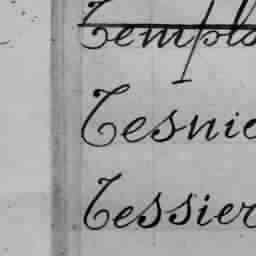 Templ
Tesnie
Tessier